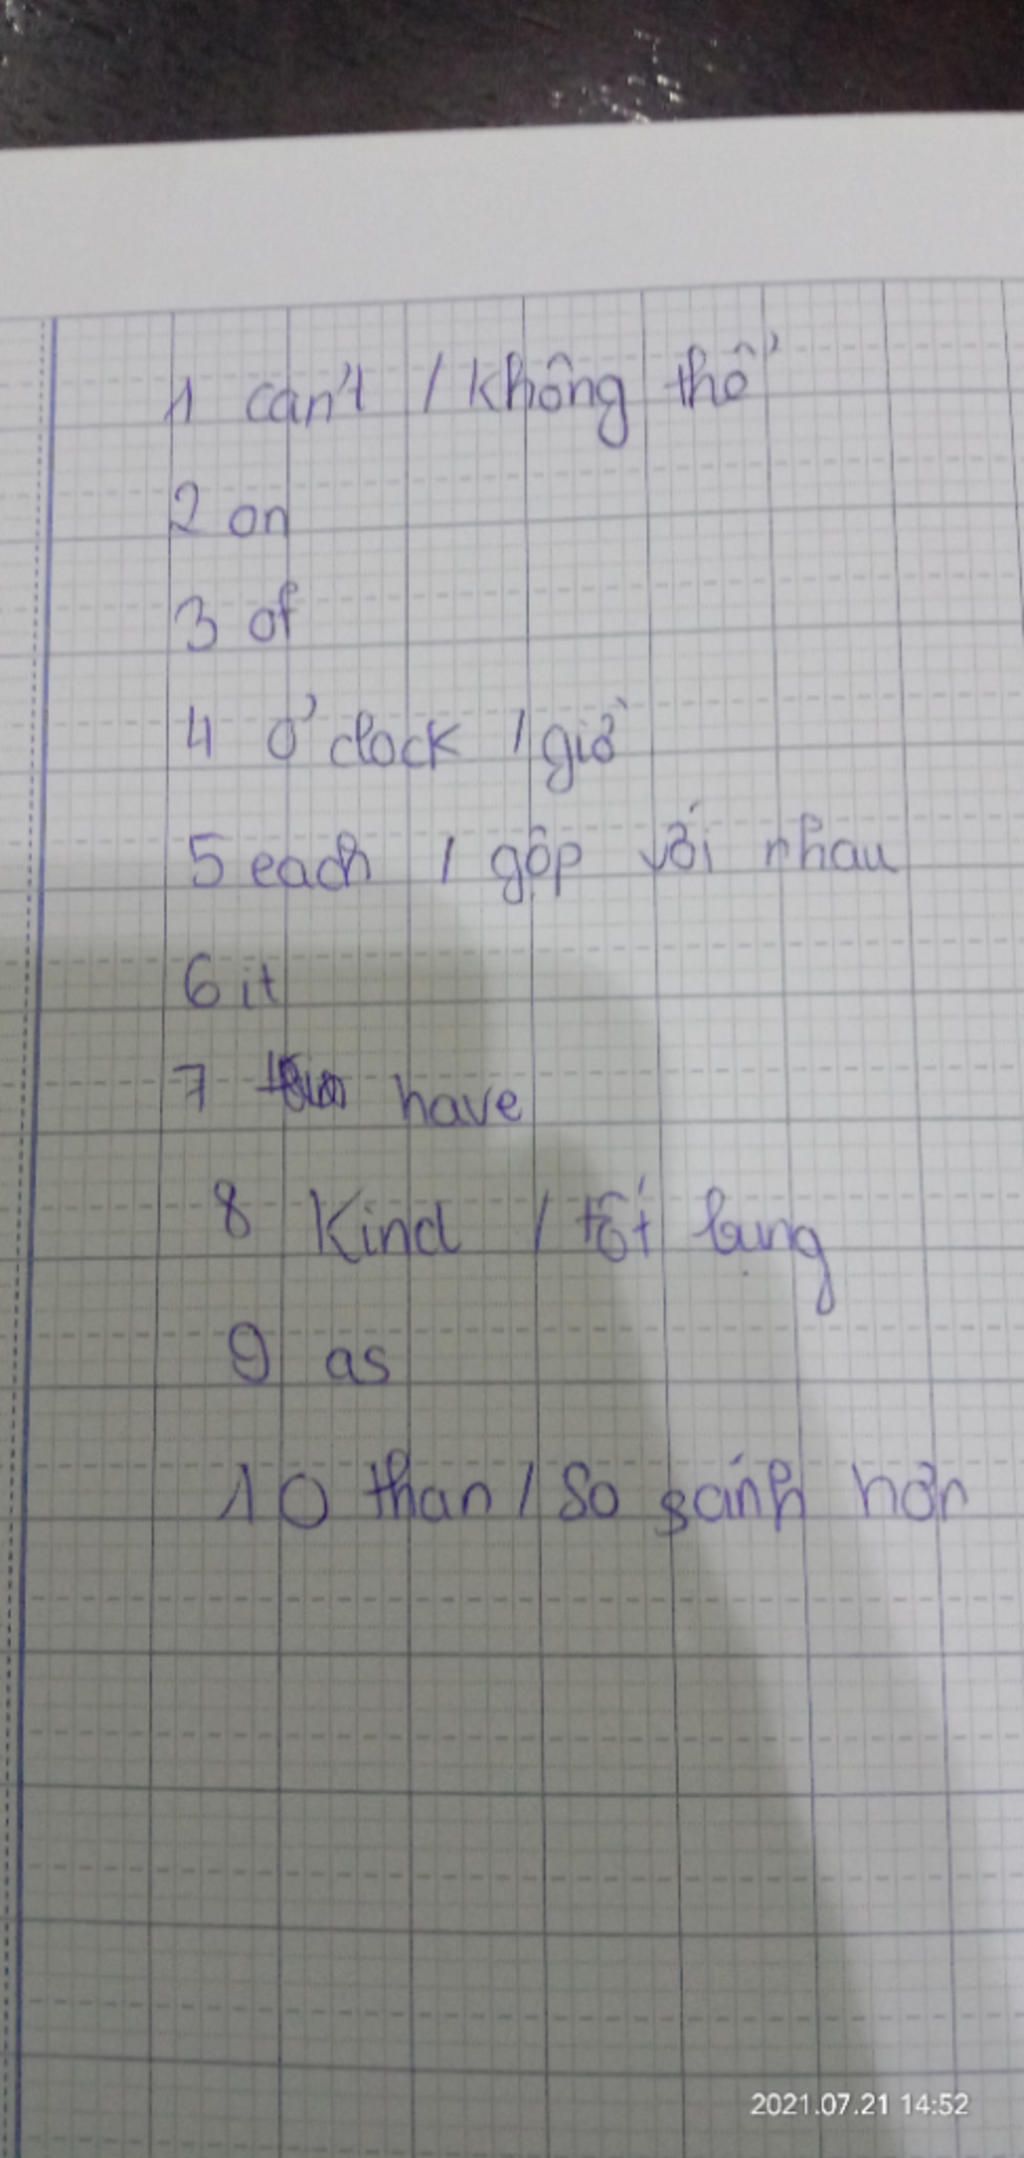 1 can't / không thể
2 on
3 of
4 o'clock / giờ
5 each / gộp với nhau
6 it
7 have
8 Kind / tốt bụng
9 as
10 than / so sánh hơn
2021.07.21 14:52